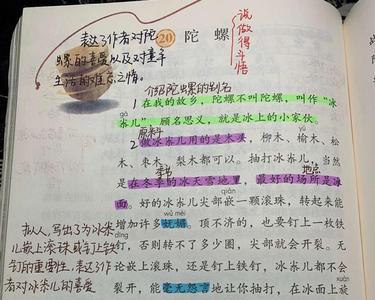 表达了作者对陀
螺的喜爱以及对童年
生活的难忘之情。
20 陀 螺
说
做
得
斗
悟
介绍陀螺的别名
1 在我的故乡，陀螺不叫陀螺，叫作“冰
gá
尜儿”，顾名思义，就是冰上的小家伙。
原料
2 做冰尜儿用的是木头，柳木、榆木、松
木、枣木、梨木都可以。抽打冰尜儿，当然
季节 地点
是在冬季的冰天雪地里，最好的场所是冰
qiàn
面。好的冰尜儿尖部嵌一颗滚珠，转起来能
wǔ mèi
增加许多妩媚。顶不济的，也要钉上一枚铁
钉，否则转不了多少圈，尖部就会开裂。无
论嵌上滚珠，还是钉上铁钉，冰尜儿都不会
xuán
裂开，能毫无怨言地让你抽打，在冰面上旋
拟人，写出了为冰尜
儿嵌上滚珠或钉上铁
钉的重要性，表达了作
者对冰尜儿的喜爱